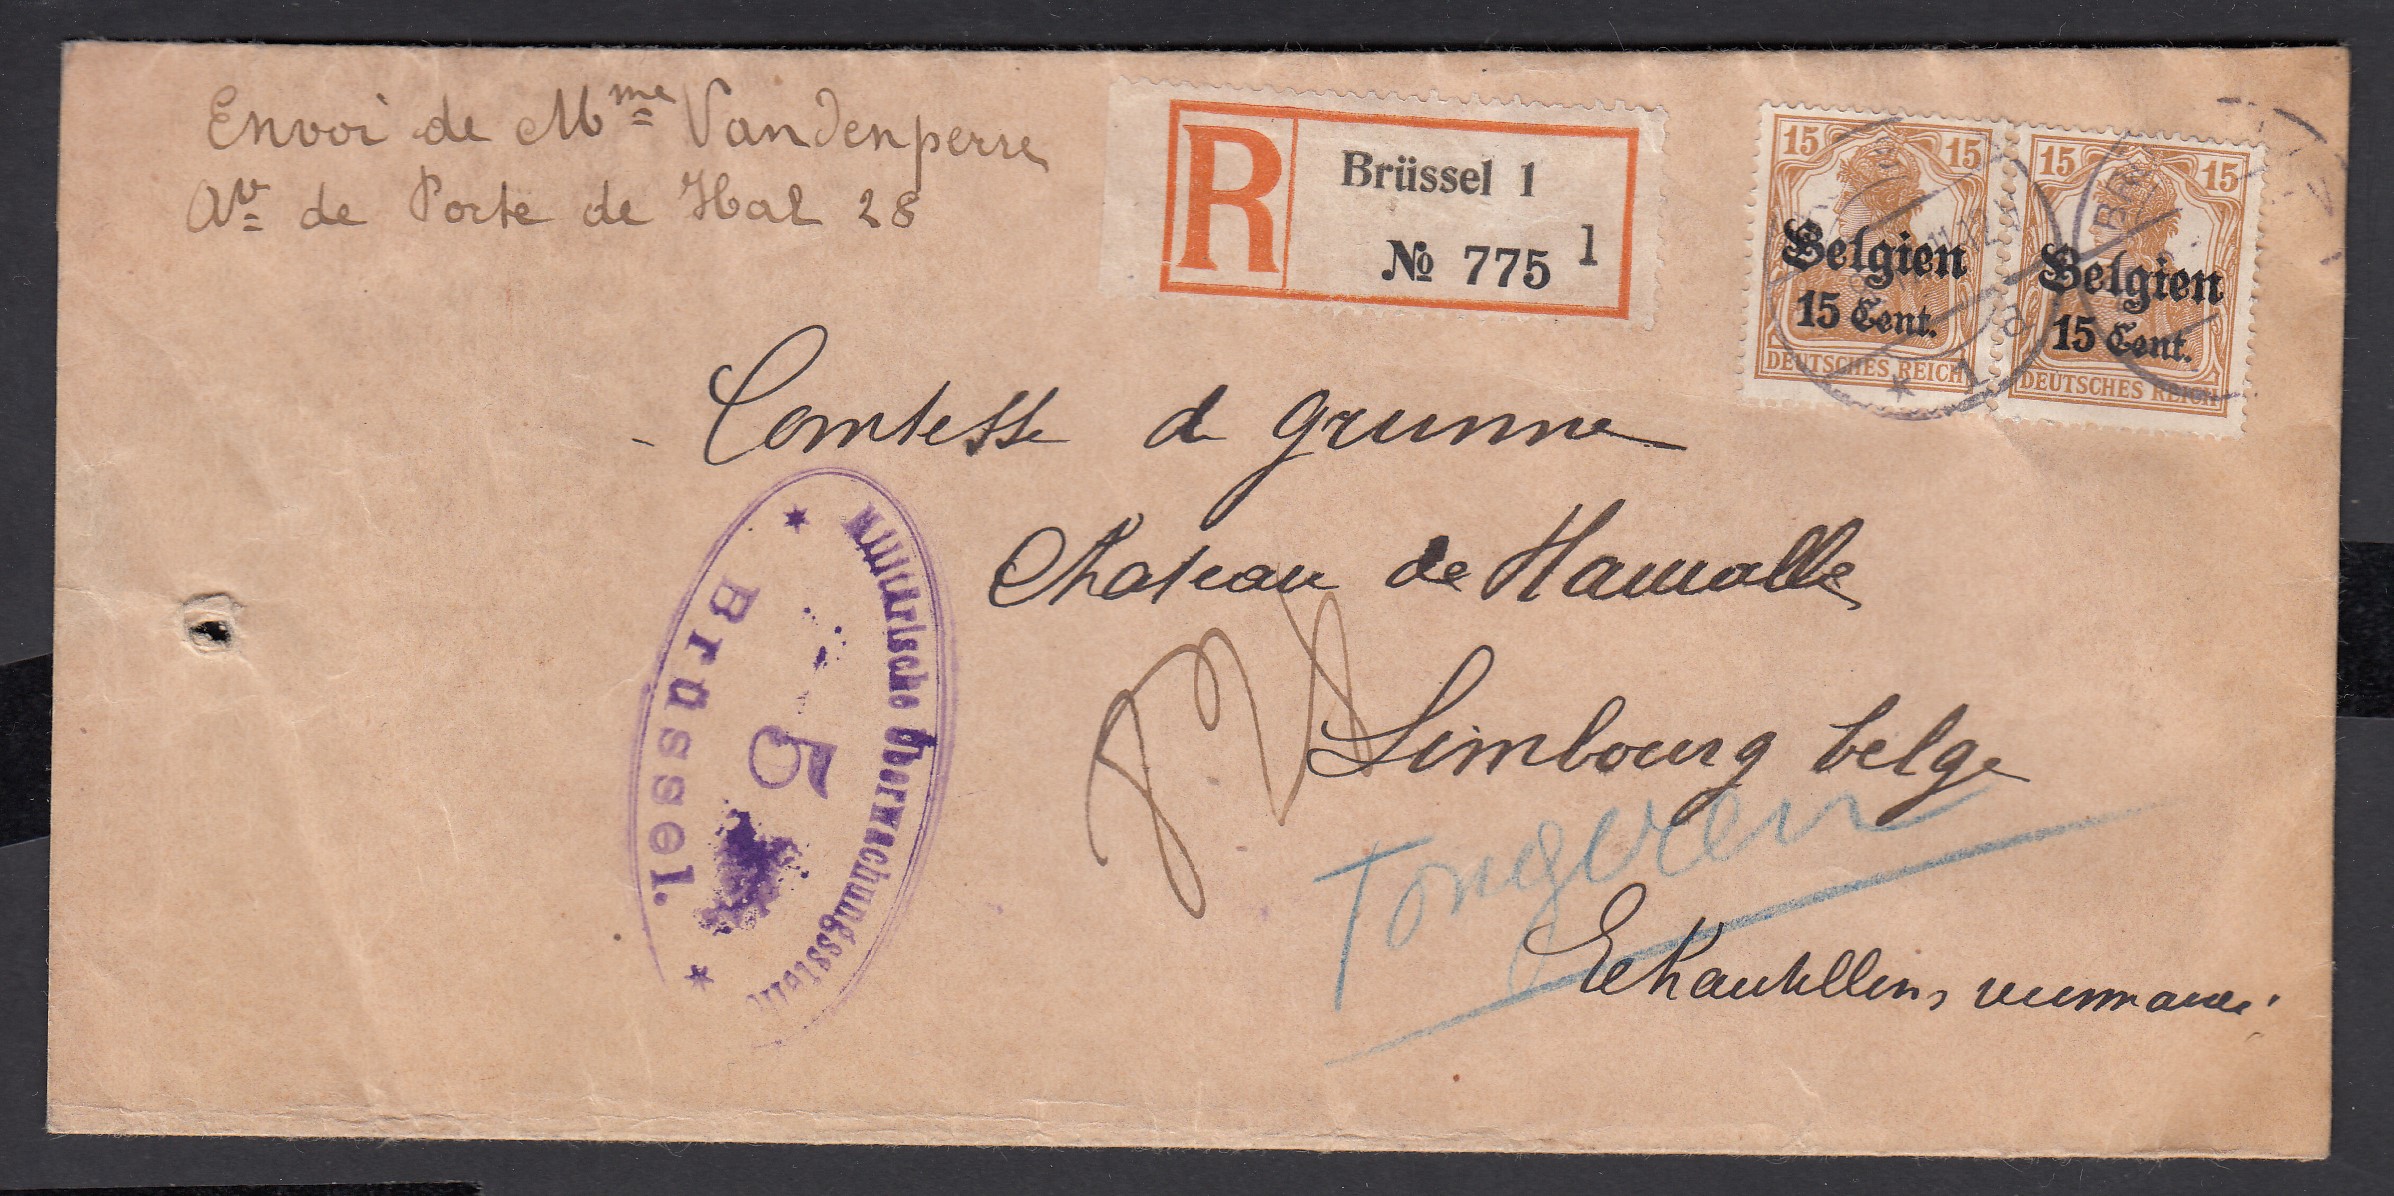 Envoi de Mme Vandenperre
Av de Porte de Hal 28
R
Brüssel 1
№ 775 1
15 15
Belgien
15 Cent.
DEUTSCHES REICH
15 15
Belgien
15 Cent.
DEUTSCHES REICH
* 1 a
BR
Comtesse de Grunne
Chateau de Hamalle
Limbourg belge
Tongeren
Militärische Überwachungsstelle
5
Brüssel.